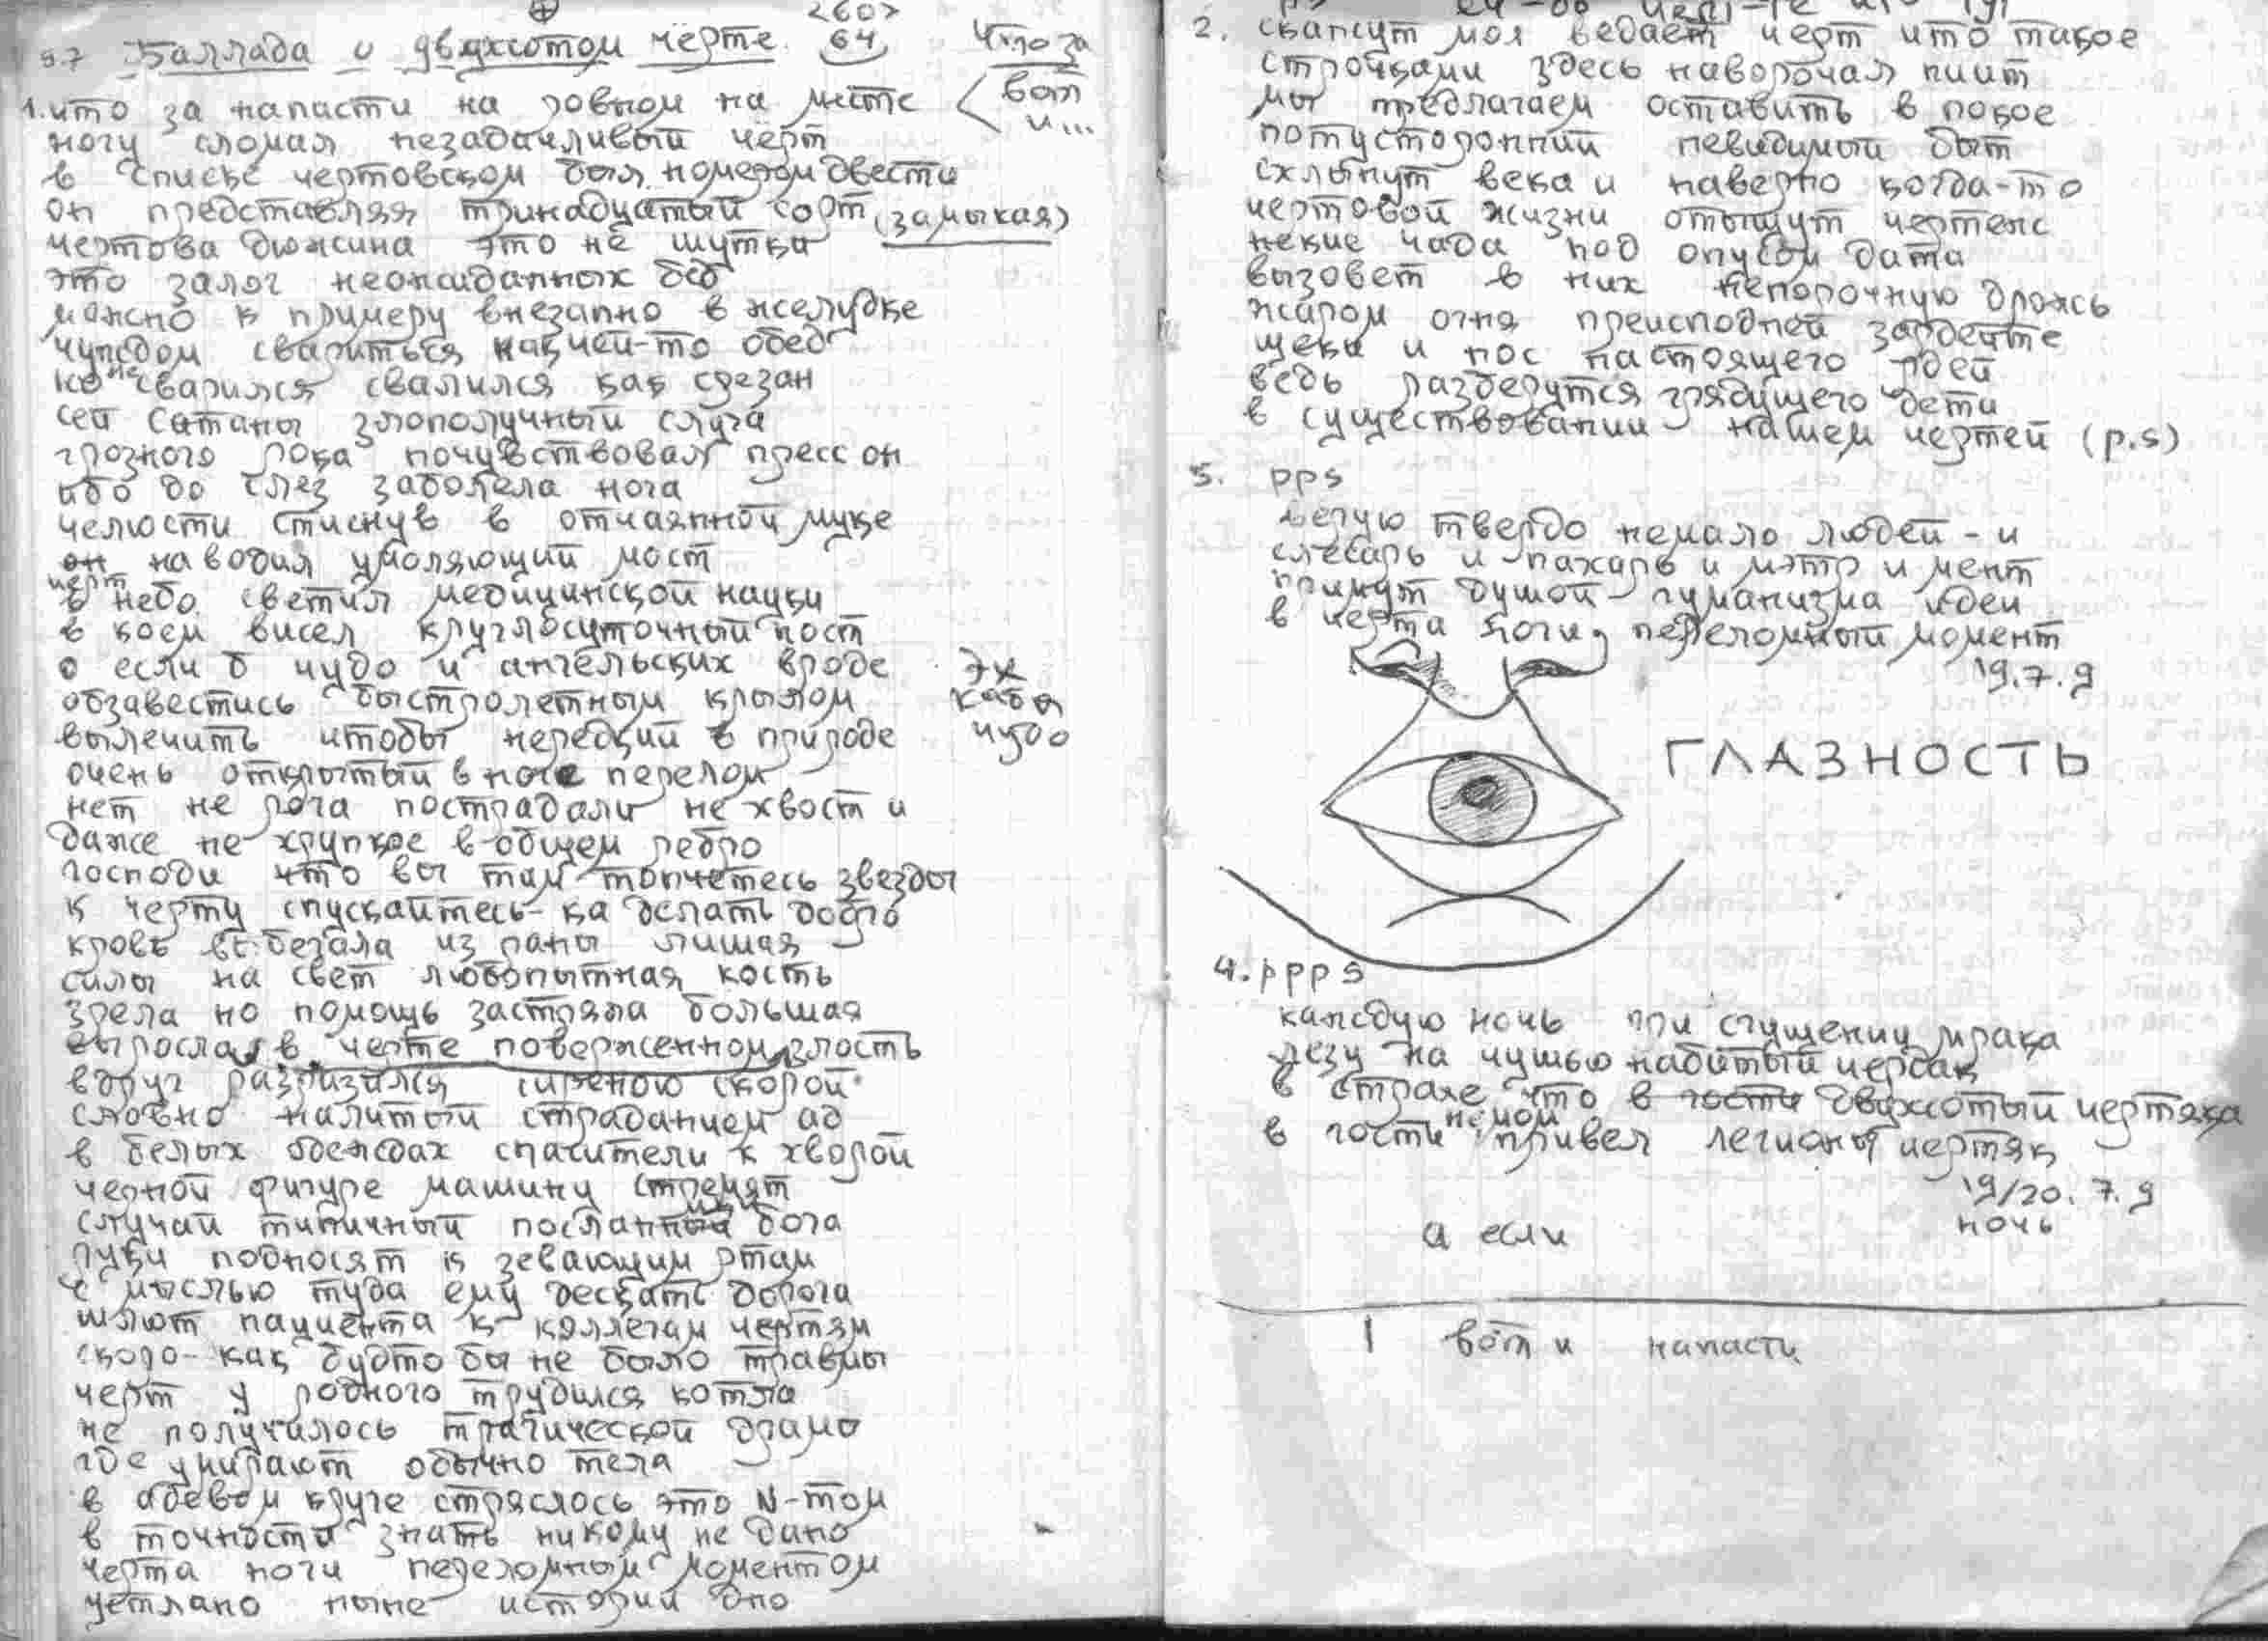 97 Баллада о двухсотом чёрте.
<60>
64
Что за
вот
и...
1. что за напасти на ровном на месте
ногу сломал незадачливый чёрт
в списке чертовском был номером двести
он представляя тринадцатый сорт (замыкая)
чертова дюжина это не шутка
это залог неожиданных бед
можно к примеру внезапно в желудке
чуждом свариться как чей-то обед
но не сварился свалился как срезан
сей сатаны злополучный слуга
грозного рока почувствовал пресс он
ибо до слез заболела нога
челюсти стиснув в отчаянной муке
он наводил умоляющий мост
черт
в небо светил медицинской науки
в коем висел круглосуточный пост
о если б чудо и ангельских вроде
эх
обзавестись быстролетным крылом
кабы
вылечить чтобы нередкий в природе
чудо
очень открытый в ноге перелом
нет не рога пострадали не хвост и
даже не хрупкое в общем ребро
господи что вы там топчетесь звезды
к черту спускайтесь-ка делать добро
кровь выбегала из раны лишая
силы на свет любопытная кость
зрела но помощь застряла большая
выросла в черте поверженном злость
вдруг разразился сиреною скорой
словно налитый страданием ад
в белых одеждах спасители к хворой
черной фигуре машину стремят
случай типичный посланцы бога
руки подносят к зевающим ртам
с мыслью туда ему дескать дорога
шлют пациента к коллегам чертям
скоро как будто бы не было травмы
черт у родного трудился котла
не получилось трагической драмы
где умирают обычно тела
в адевом круге стряслось это N-том
в точности знать никому не дано
черта ноги переломным моментом
устлано ныне истории дно
2. скапсут моя ведает черт что такое
строчками здесь наворочал пиит
мы предлагаем оставить в покое
потусторонний невидимый быт
схлынут века и наверно когда-то
чертовой жизни отыщут чертеж
некие чада под опусом дата
вызовет в них непорочную дрожь
жаром огня преисподней зардейте
щеки и нос настоящего рдей
ведь разберутся грядущего дети
в существовании нашем чертей (p.s)
3. pps
верую твердо немало людей - и
слесарь и пахарь и мэтр и мент
примут душой гуманизма идеи
в черта ноги переломный момент
19.7.9
ГЛАЗНОСТЬ
4. ppps
каждую ночь при сгущении мрака
лезу на чушью набитый чердак
в страхе что в гости двухсотый чертяка
в гости ко мне привел легионы чертяк
19/20.7.9
ночь
а если
1 вот и напасти